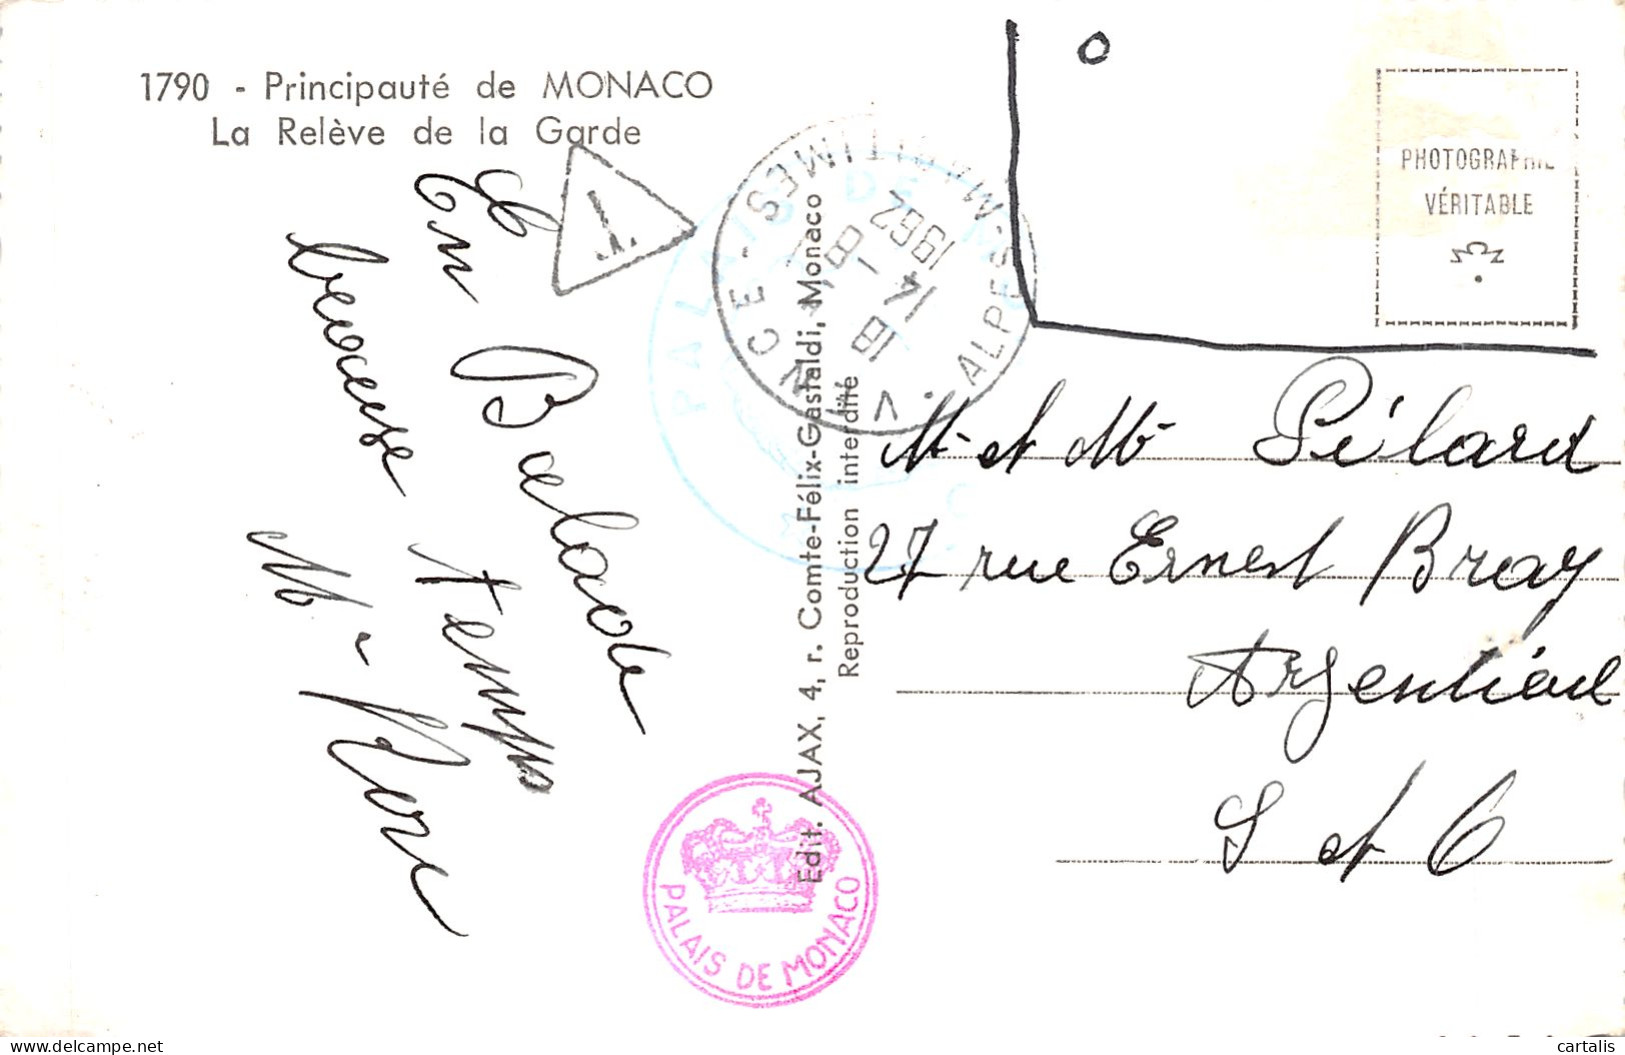 1790 - Principauté de MONACO
La Relève de la Garde
En Balade
heureuse temps
T
VENCE - ALPES-MARITIMES
18 H
14 - 8
1962
PALAIS DE
Edit. AJAX, 4, r. Comte-Félix-Gastaldi, Monaco
Reproduction interdite
PALAIS DE MONACO
O
PHOTOGRAPHIE
VÉRITABLE
M- et Mme Pélard
27 rue Ernest Bray
Argentieul
S et O
cartalis